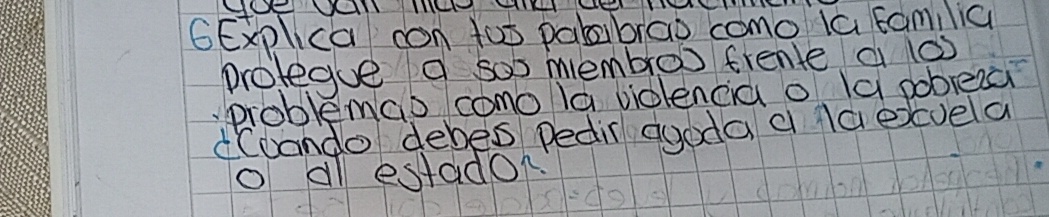 6 Explica con tus palabras como la familia
protegue a sos miembros frente a los
problemas como la violencia o la pobreza
¿Cuando debes pedir ayoda a la excuela
o al estado?